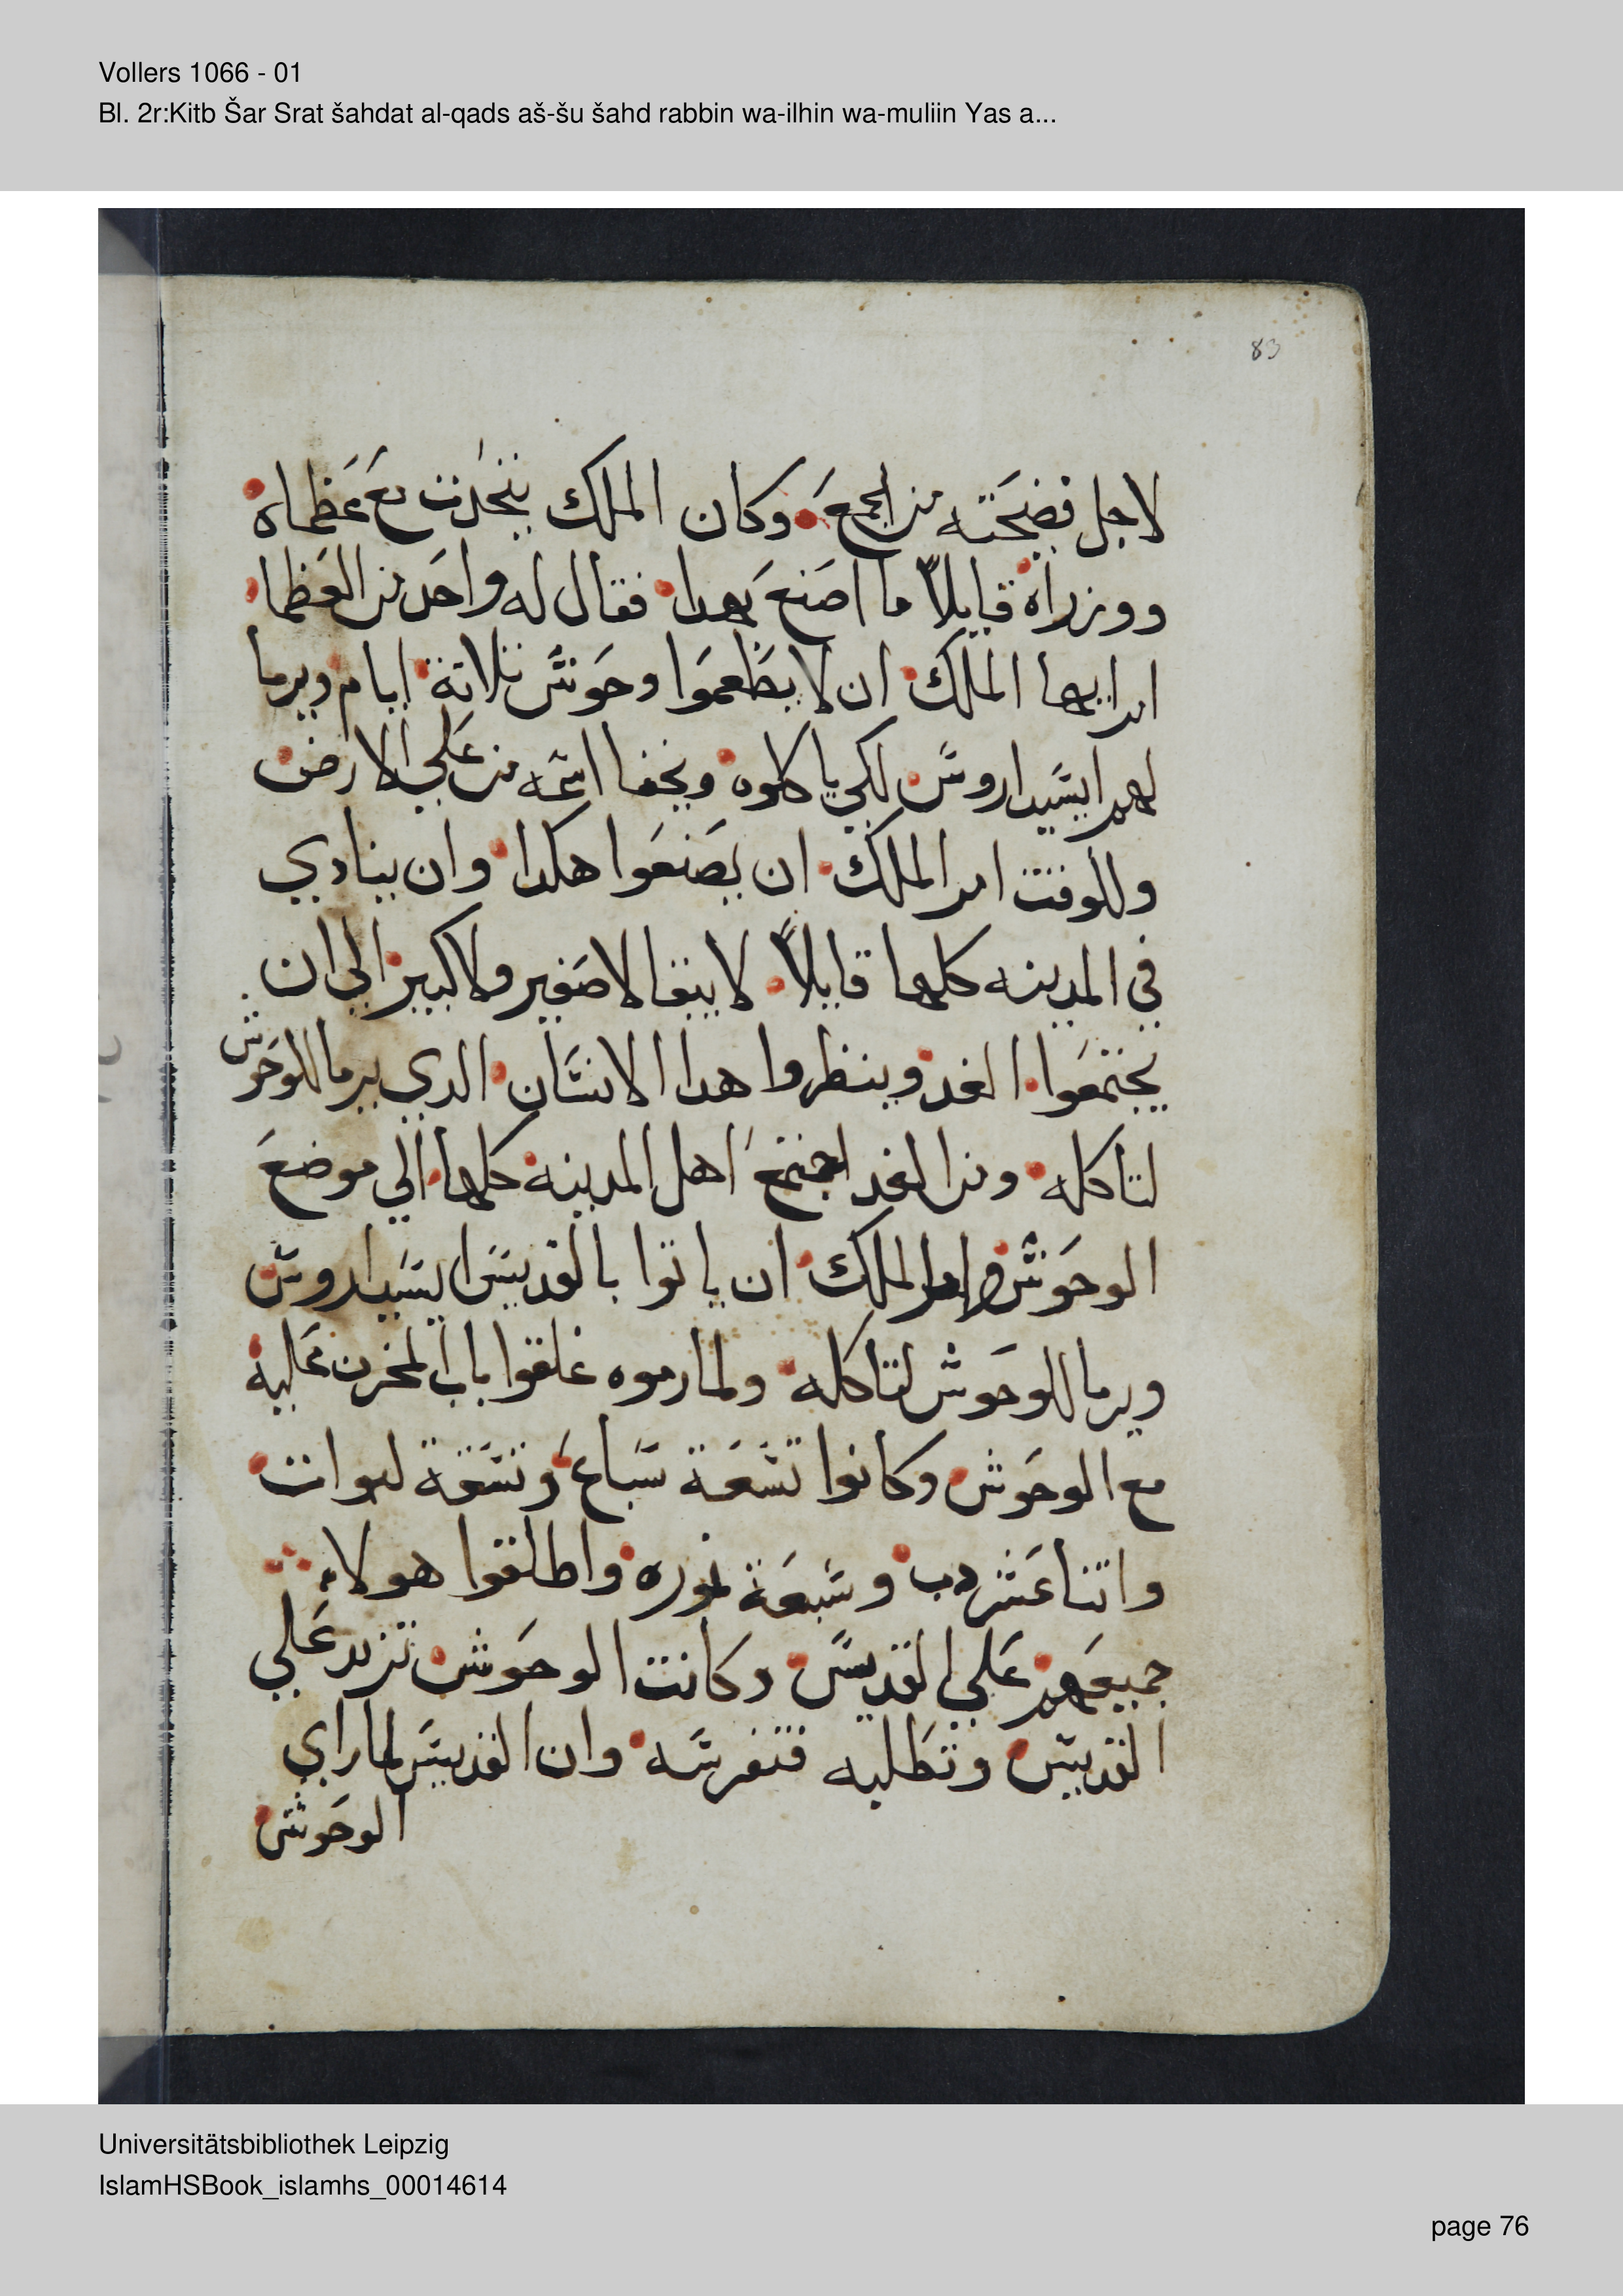 Vollers 1066 - 01
Bl. 2r:Kitb Šar Srat šahdat al-qads aš-šu šahd rabbin wa-ilhin wa-muliin Yas a...
83
لاجل فضيحته من الجمع وكان الملك يتحدت مع عظماه
ووزراه قايلاً ما اصنع بهدا فقال له واحد من العظما
امر ايها الملك ان لا يطعموا وحوش تلاتة ايام ويرما
لهم ايسيداروس لكي ياكلوه ويخفا اسمه من علي الارض
وللوقت امر الملك ان يصنعوا هكدا وان ينادي
في المدينه كلها قايلاً لا يبقا لا صغير ولا كبير الي ان
يجتمعوا الغد وينظروا هدا الانسان الدي يرما للوحوش
لتاكله ومن الغد اجتمع اهل المدينه كلها الي موضع
الوحوش وامر الملك ان ياتوا بالقديس ايسيداروس
ويرما للوحوش لتاكله ولما رموه غلقوا باب المخزن عليه
مع الوحوش وكانوا تسعة سباع وتسعة لبوات
واتنا عشر دب وسبعة نموره واطلقوا هولاء
جميعهم علي القديس وكانت الوحوش تزير علي
القديس وتطلبه فتفرسه وان القديس لما راي
الوحوش
Universitätsbibliothek Leipzig
IslamHSBook_islamhs_00014614
page 76